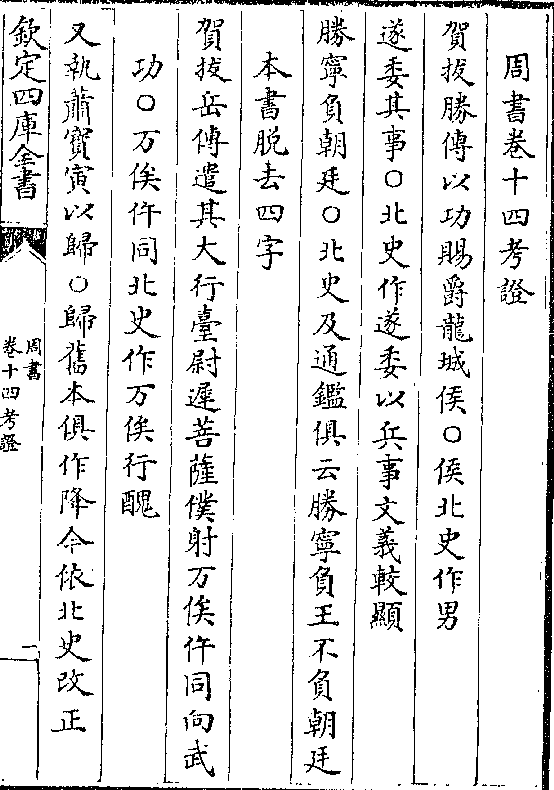 周書卷十四考證
賀拔勝傳以功賜爵龍城侯○侯北史作男
遂委其事○北史作遂委以兵事文義較顯
勝寧負朝廷○北史及通鑑俱云勝寧負王不負朝廷
本書脱去四字
賀拔岳傳遣其大行臺尉遲菩薩僕射万俟仵同向武
功○万俟仵同北史作万俟行醜
又執蕭寳寅以歸○歸舊本俱作降今依北史改正
欽定四庫全書
周書
卷十四考證
二